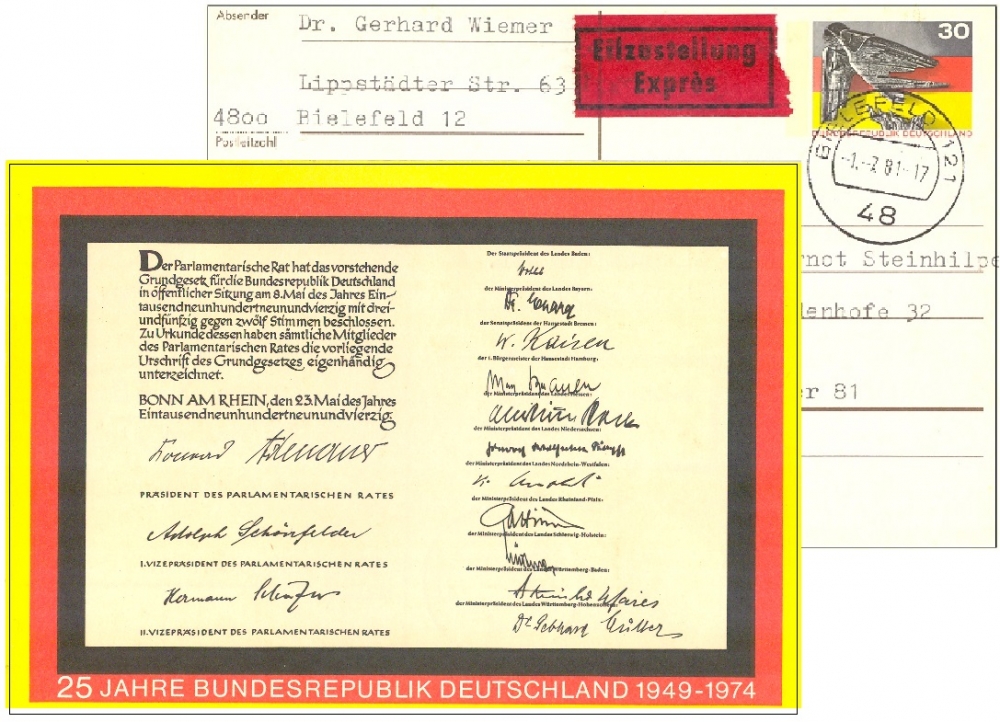 Absender
Dr. Gerhard Wiemer
Lippstädter Str. 63
4800 Bielefeld 12
Postleitzahl
Eilzustellung
Exprès
30
BUNDESREPUBLIK DEUTSCHLAND
BIELEFELD 121
-1.-7.81-17
48
rnot Steinhilpe
lenhofe 32
er 81
Der Parlamentarische Rat hat das vorstehende
Grundgesetz für die Bundesrepublik Deutschland
in öffentlicher Sitzung am 8. Mai des Jahres Ein-
tausendneunhundertneunundvierzig mit drei-
undfünfzig gegen zwölf Stimmen beschlossen.
Zu Urkunde dessen haben sämtliche Mitglieder
des Parlamentarischen Rates die vorliegende
Urschrift des Grundgesetzes eigenhändig
unterzeichnet.
BONN AM RHEIN, den 23. Mai des Jahres
Eintausendneunhundertneunundvierzig
Konrad Adenauer
PRÄSIDENT DES PARLAMENTARISCHEN RATES
Adolph Schönfelder
I. VIZEPRÄSIDENT DES PARLAMENTARISCHEN RATES
Hermann Schäfer
II. VIZEPRÄSIDENT DES PARLAMENTARISCHEN RATES
Der Staatspräsident des Landes Baden:
der Ministerpräsident des Landes Bayern:
Dr. Ehard
der Senatspräsident der Hansestadt Bremen:
W. Kaisen
der 1. Bürgermeister der Hansestadt Hamburg:
Max Brauer
der Ministerpräsident des Landes Hessen:
der Ministerpräsident des Landes Niedersachsen:
der Ministerpräsident des Landes Nordrhein-Westfalen:
K. Arnold
der Ministerpräsident des Landes Rheinland-Pfalz:
der Ministerpräsident des Landes Schleswig-Holstein:
der Ministerpräsident des Landes Württemberg-Baden:
der Ministerpräsident des Landes Württemberg-Hohenzollern:
Dr Gebhard Müller
25 JAHRE BUNDESREPUBLIK DEUTSCHLAND 1949-1974